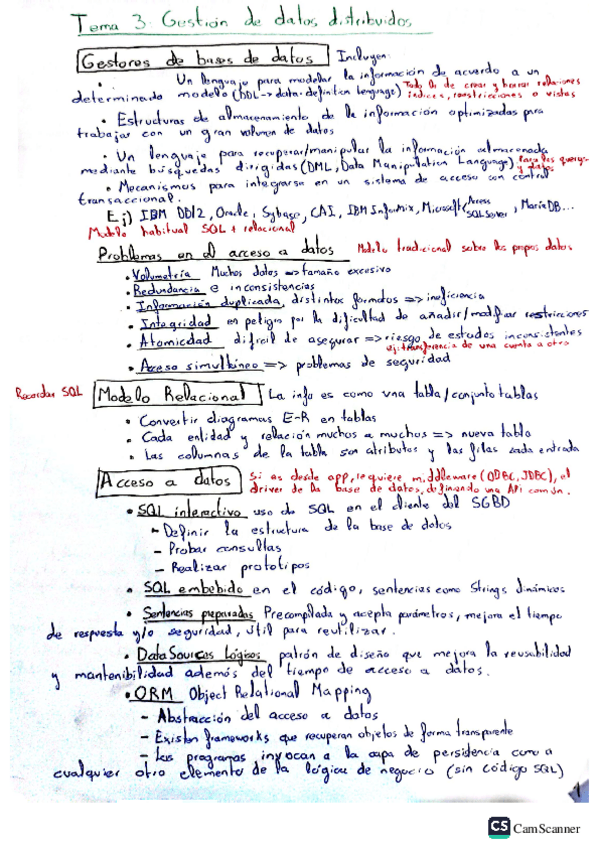 Tema 3: Gestión de datos distribuidos
Gestores de bases de datos Incluyen:
• Un lenguaje para modelar la información de acuerdo a un
determinado modelo (DDL -> data definition language) Todo lo de crear y borrar relaciones
índices, restricciones o vistas
• Estructuras de almacenamiento de la información optimizadas para
trabajar con un gran volumen de datos
• Un lenguaje para recuperar/manipular la información almacenada
mediante búsquedas dirigidas (DML, Data Manipulation Language) Para las querys
y datos
• Mecanismos para integrarse en un sistema de acceso con control
transaccional.
Ej) IBM DB/2, Oracle, Sybase, CAI, IBM Informix, Microsoft Access
SQLServer, MariaDB...
Modelo habitual SQL + relacional
Problemas en el acceso a datos Modelo tradicional sobre los propos datos
• Volumetría Muchos datos => tamaño excesivo
• Redundancia e inconsistencias
• Información duplicada, distintos formatos => ineficiencia
• Integridad en peligro por la dificultad de añadir/modificar restricciones
• Atomicidad difícil de asegurar => riesgo de estados inconsistentes
ej: transferencia de una cuenta a otra
• Acceso simultáneo => problemas de seguridad
Recordar SQL Modelo Relacional La info es como una tabla/conjunto tablas
• Convertir diagramas E-R en tablas
• Cada entidad y relación muchos a muchos => nueva tabla
• Las columnas de la tabla son atributos y las filas cada entrada
Acceso a datos Si es desde app, requiere middleware (ODBC, JDBC), el
driver de la base de datos, definiendo una Api común.
• SQL interactivo uso de SQL en el cliente del SGBD
- Definir la estructura de la base de datos
- Probar consultas
- Realizar prototipos
• SQL embebido en el código, sentencias como Strings dinámicos
• Sentencias preparadas Precompilada y acepta parámetros, mejora el tiempo
de respuesta y/o seguridad, útil para reutilizar.
• DataSources Lógicos patrón de diseño que mejora la reusabilidad
y mantenibilidad además del tiempo de acceso a datos.
• ORM Object Relational Mapping
- Abstracción del acceso a datos
- Existen frameworks que recuperan objetos de forma transparente
- Los programas invocan a la capa de persistencia como a
cualquier otro elemento de la lógica de negocio (sin código SQL)
1
CS CamScanner